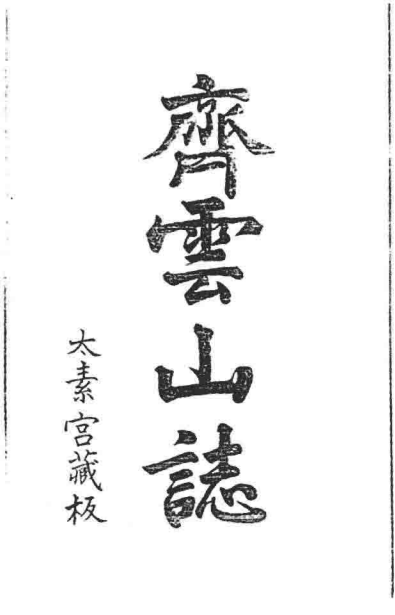 齊雲山誌
太素宮藏板